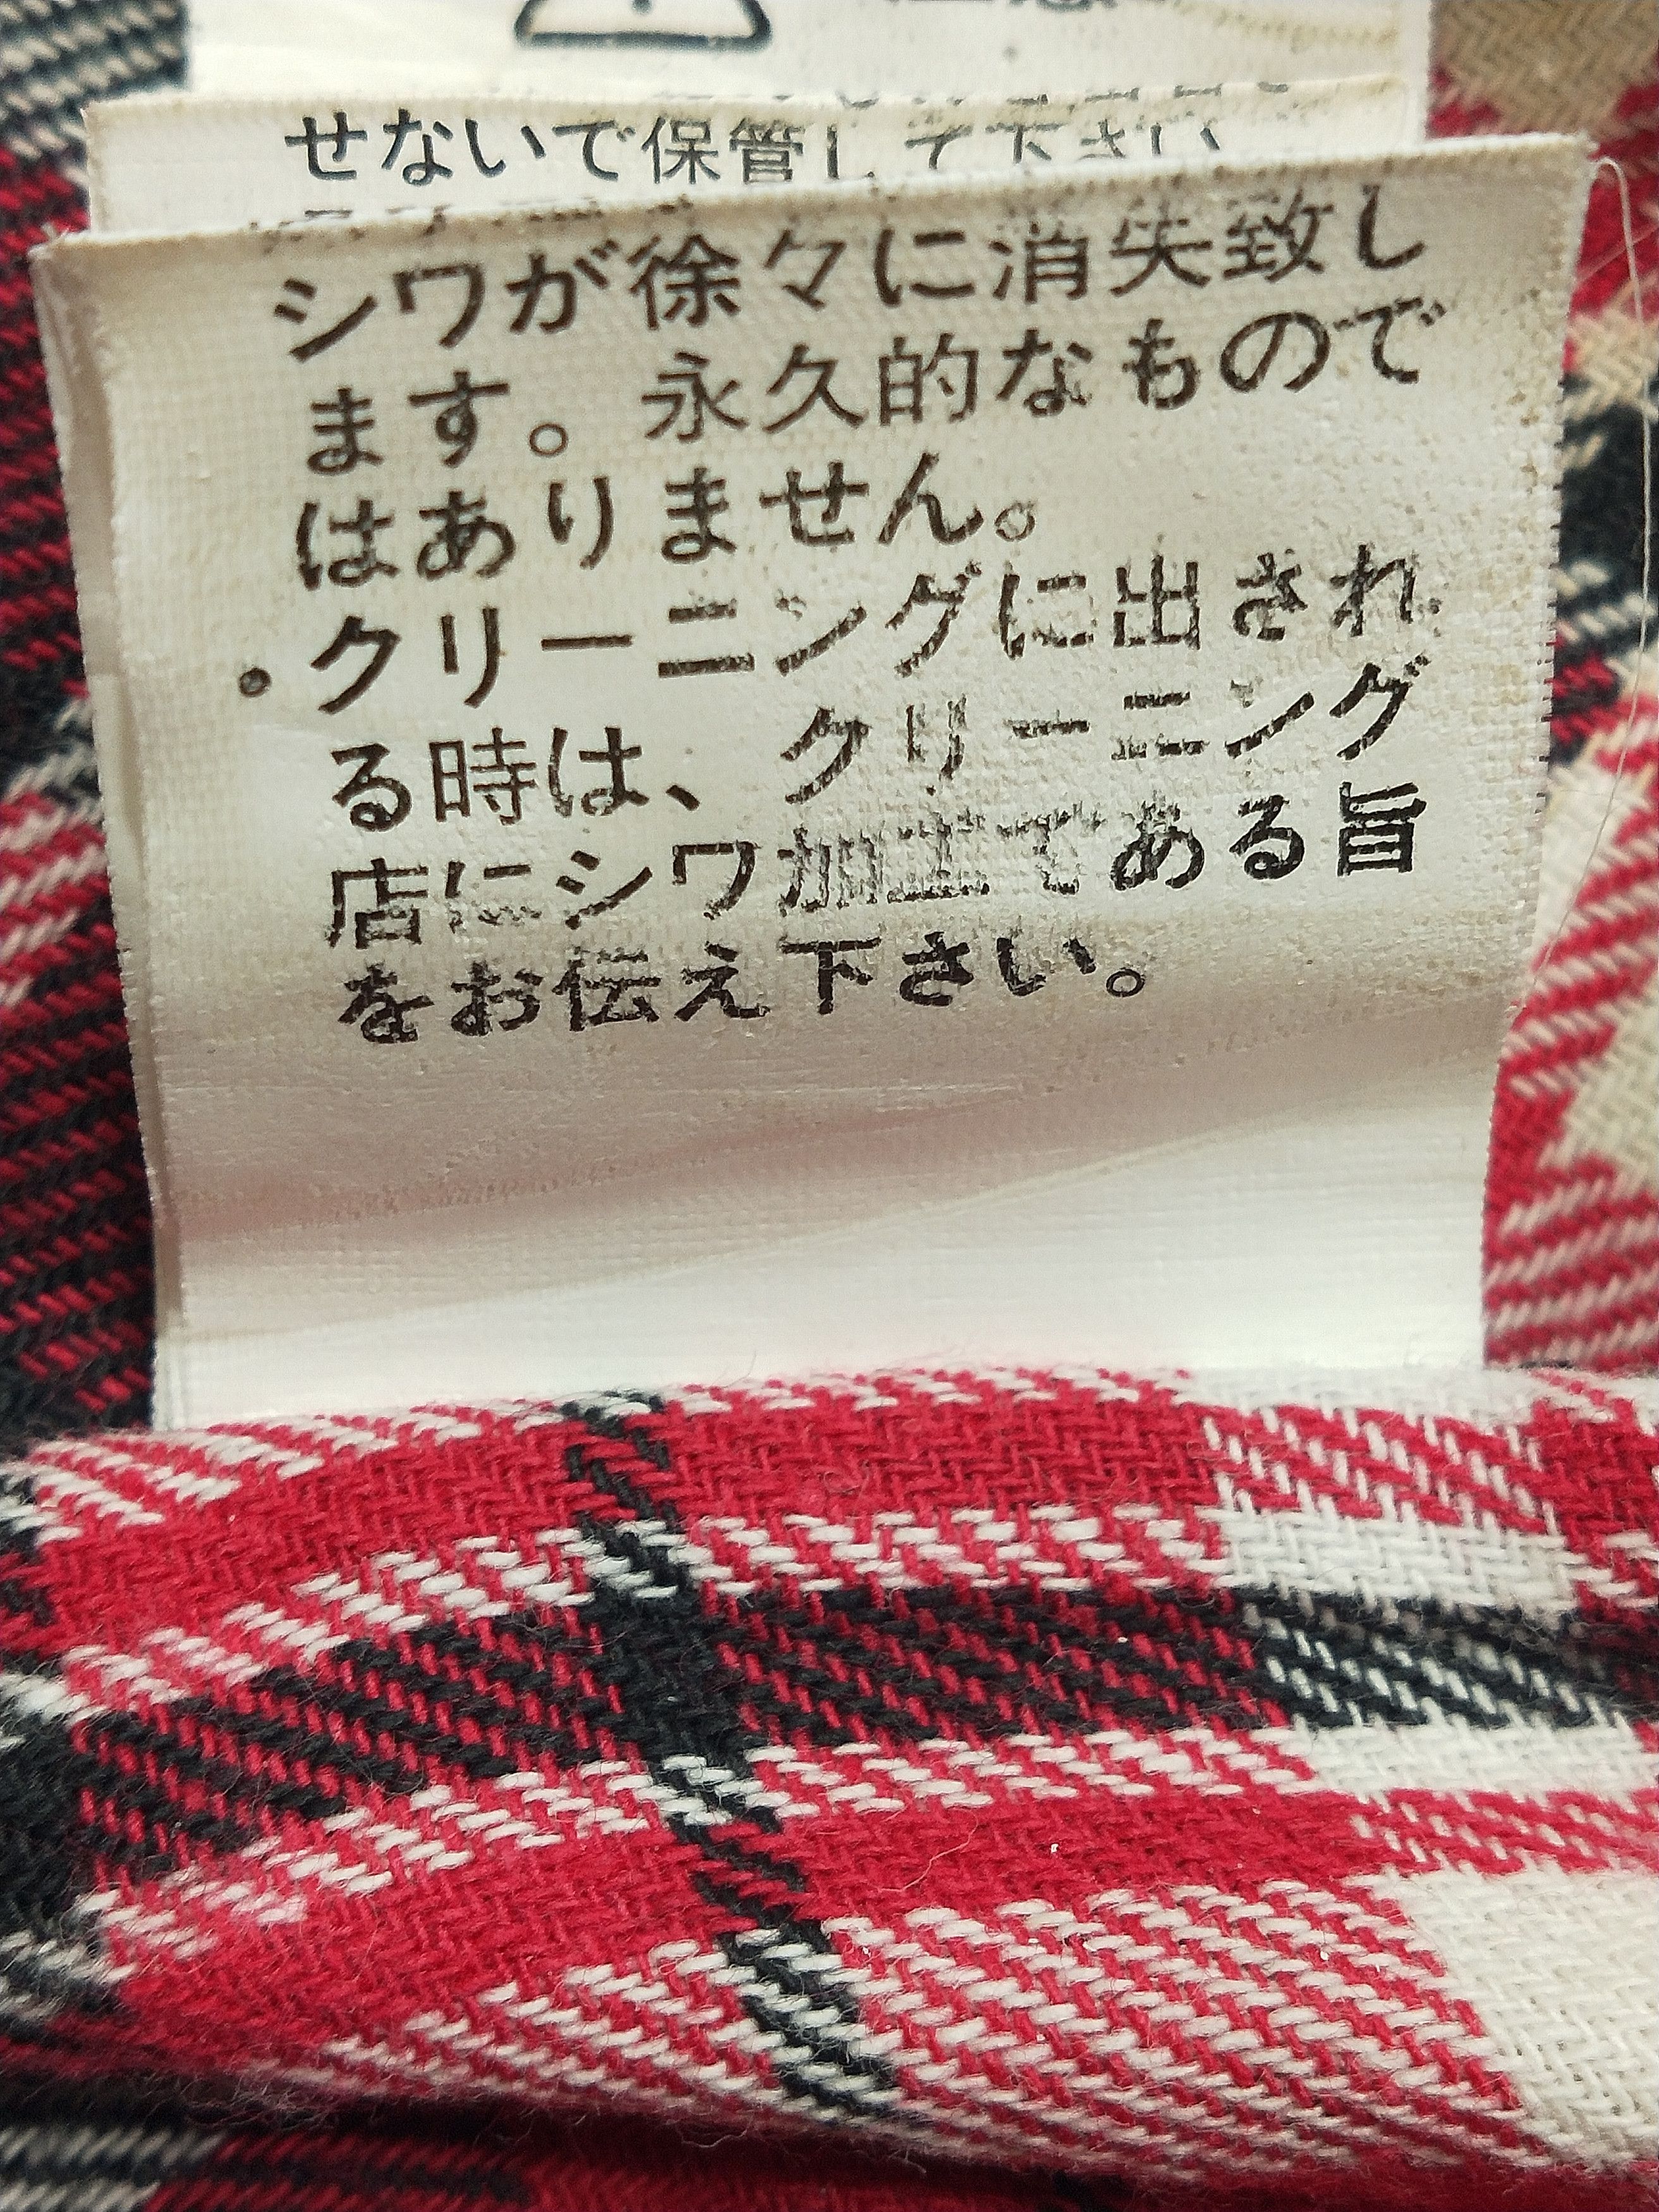 せないで保管して下さい
シワが徐々に消失致し
ます。永久的なもので
はありません。
・クリーニングに出され
る時は、クリーニング
店にシワ加工てある旨
をお伝え下さい。